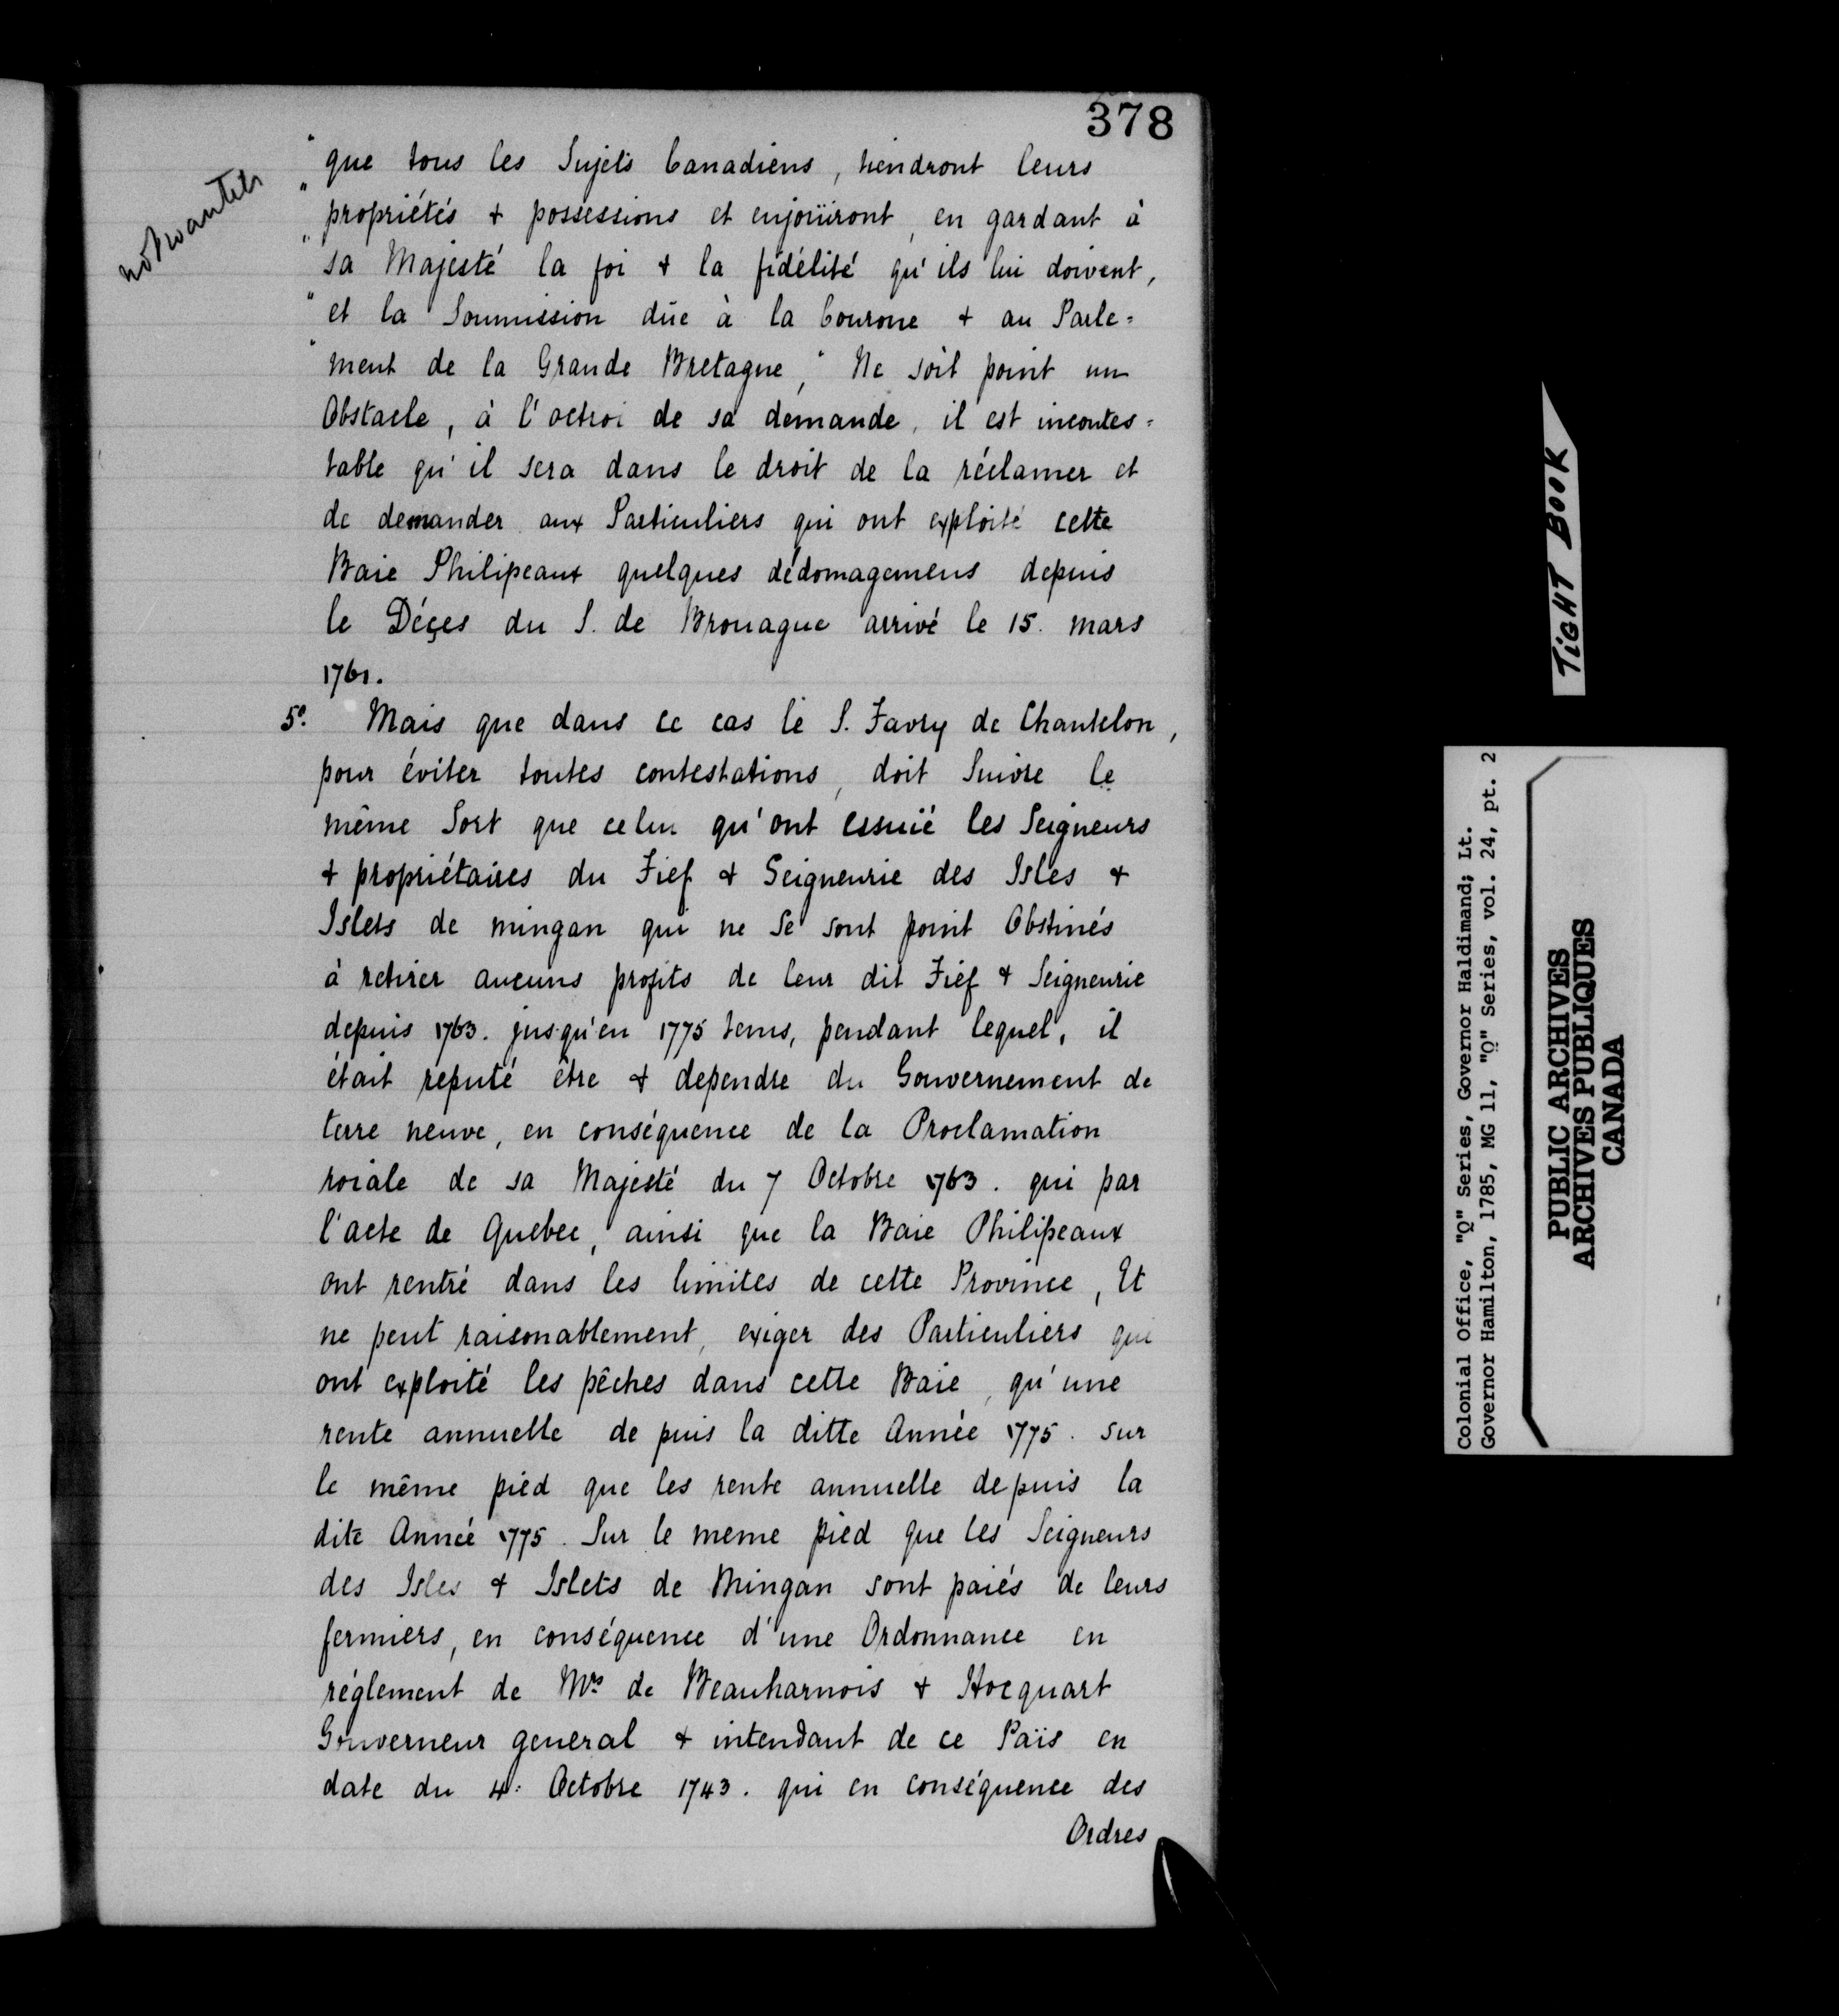 378
not wanted
" que tous les Sujets Canadiens, tiendront leurs
" propriétés & possessions et enjoüiront, en gardant à
" sa Majesté la foi & la fidélité qu'ils lui doivent,
" et la Soumission düe à la Courone & au Parle=
" ment de la Grande Bretagne," Ne soit point un
Obstacle, à l'octroi de sa demande, il est incontes=
table qu'il sera dans le droit de la réclamer et
de demander aux Particuliers qui ont exploité cette
Baie Philipeaux quelques dédomagemens depuis
le Déçes du S. de Brouague arrivé le 15. mars
1761.
5º. Mais que dans ce cas le S. Favry de Chantelon,
pour éviter toutes contestations, doit Suivre le
même Sort que celui qu'ont essuié les Seigneurs
& propriétaires du Fief & Seigneurie des Isles &
Islets de mingan qui ne se sont point Obstinés
à retirer aucuns profits de leur dit Fief & Seigneurie
depuis 1763. jusqu'en 1775 tems, pendant lequel, il
était reputé être & dependre du Gouvernement de
terre neuve, en conséquence de la Proclamation
roiale de sa Majesté du 7 Octobre 1763. qui par
l'acte de Quebec, ainsi que la Baie Philipeaux
ont rentré dans les limites de cette Province, Et
ne peut raisonablement, exiger des Particuliers qui
ont exploité les pêches dans cette Baie, qu'une
rente annuelle de puis la ditte Année 1775. sur
le même pied que les rente annuelle depuis la
dite Année 1775. Sur le meme pied que les Seigneurs
des Isles & Islets de Mingan sont paiés de leurs
fermiers, en conséquence d'une Ordonnance en
réglement de Mrs de Beauharnois & Hocquart
Gouverneur general & intendant de ce Païs en
date du 4: Octobre 1743. qui en conséquence des
Ordres
TIGHT BOOK
Colonial Office, "Q" Series, Governor Haldimand; Lt.
Governor Hamilton, 1785, MG 11, "Q" Series, vol. 24, pt. 2
PUBLIC ARCHIVES
ARCHIVES PUBLIQUES
CANADA